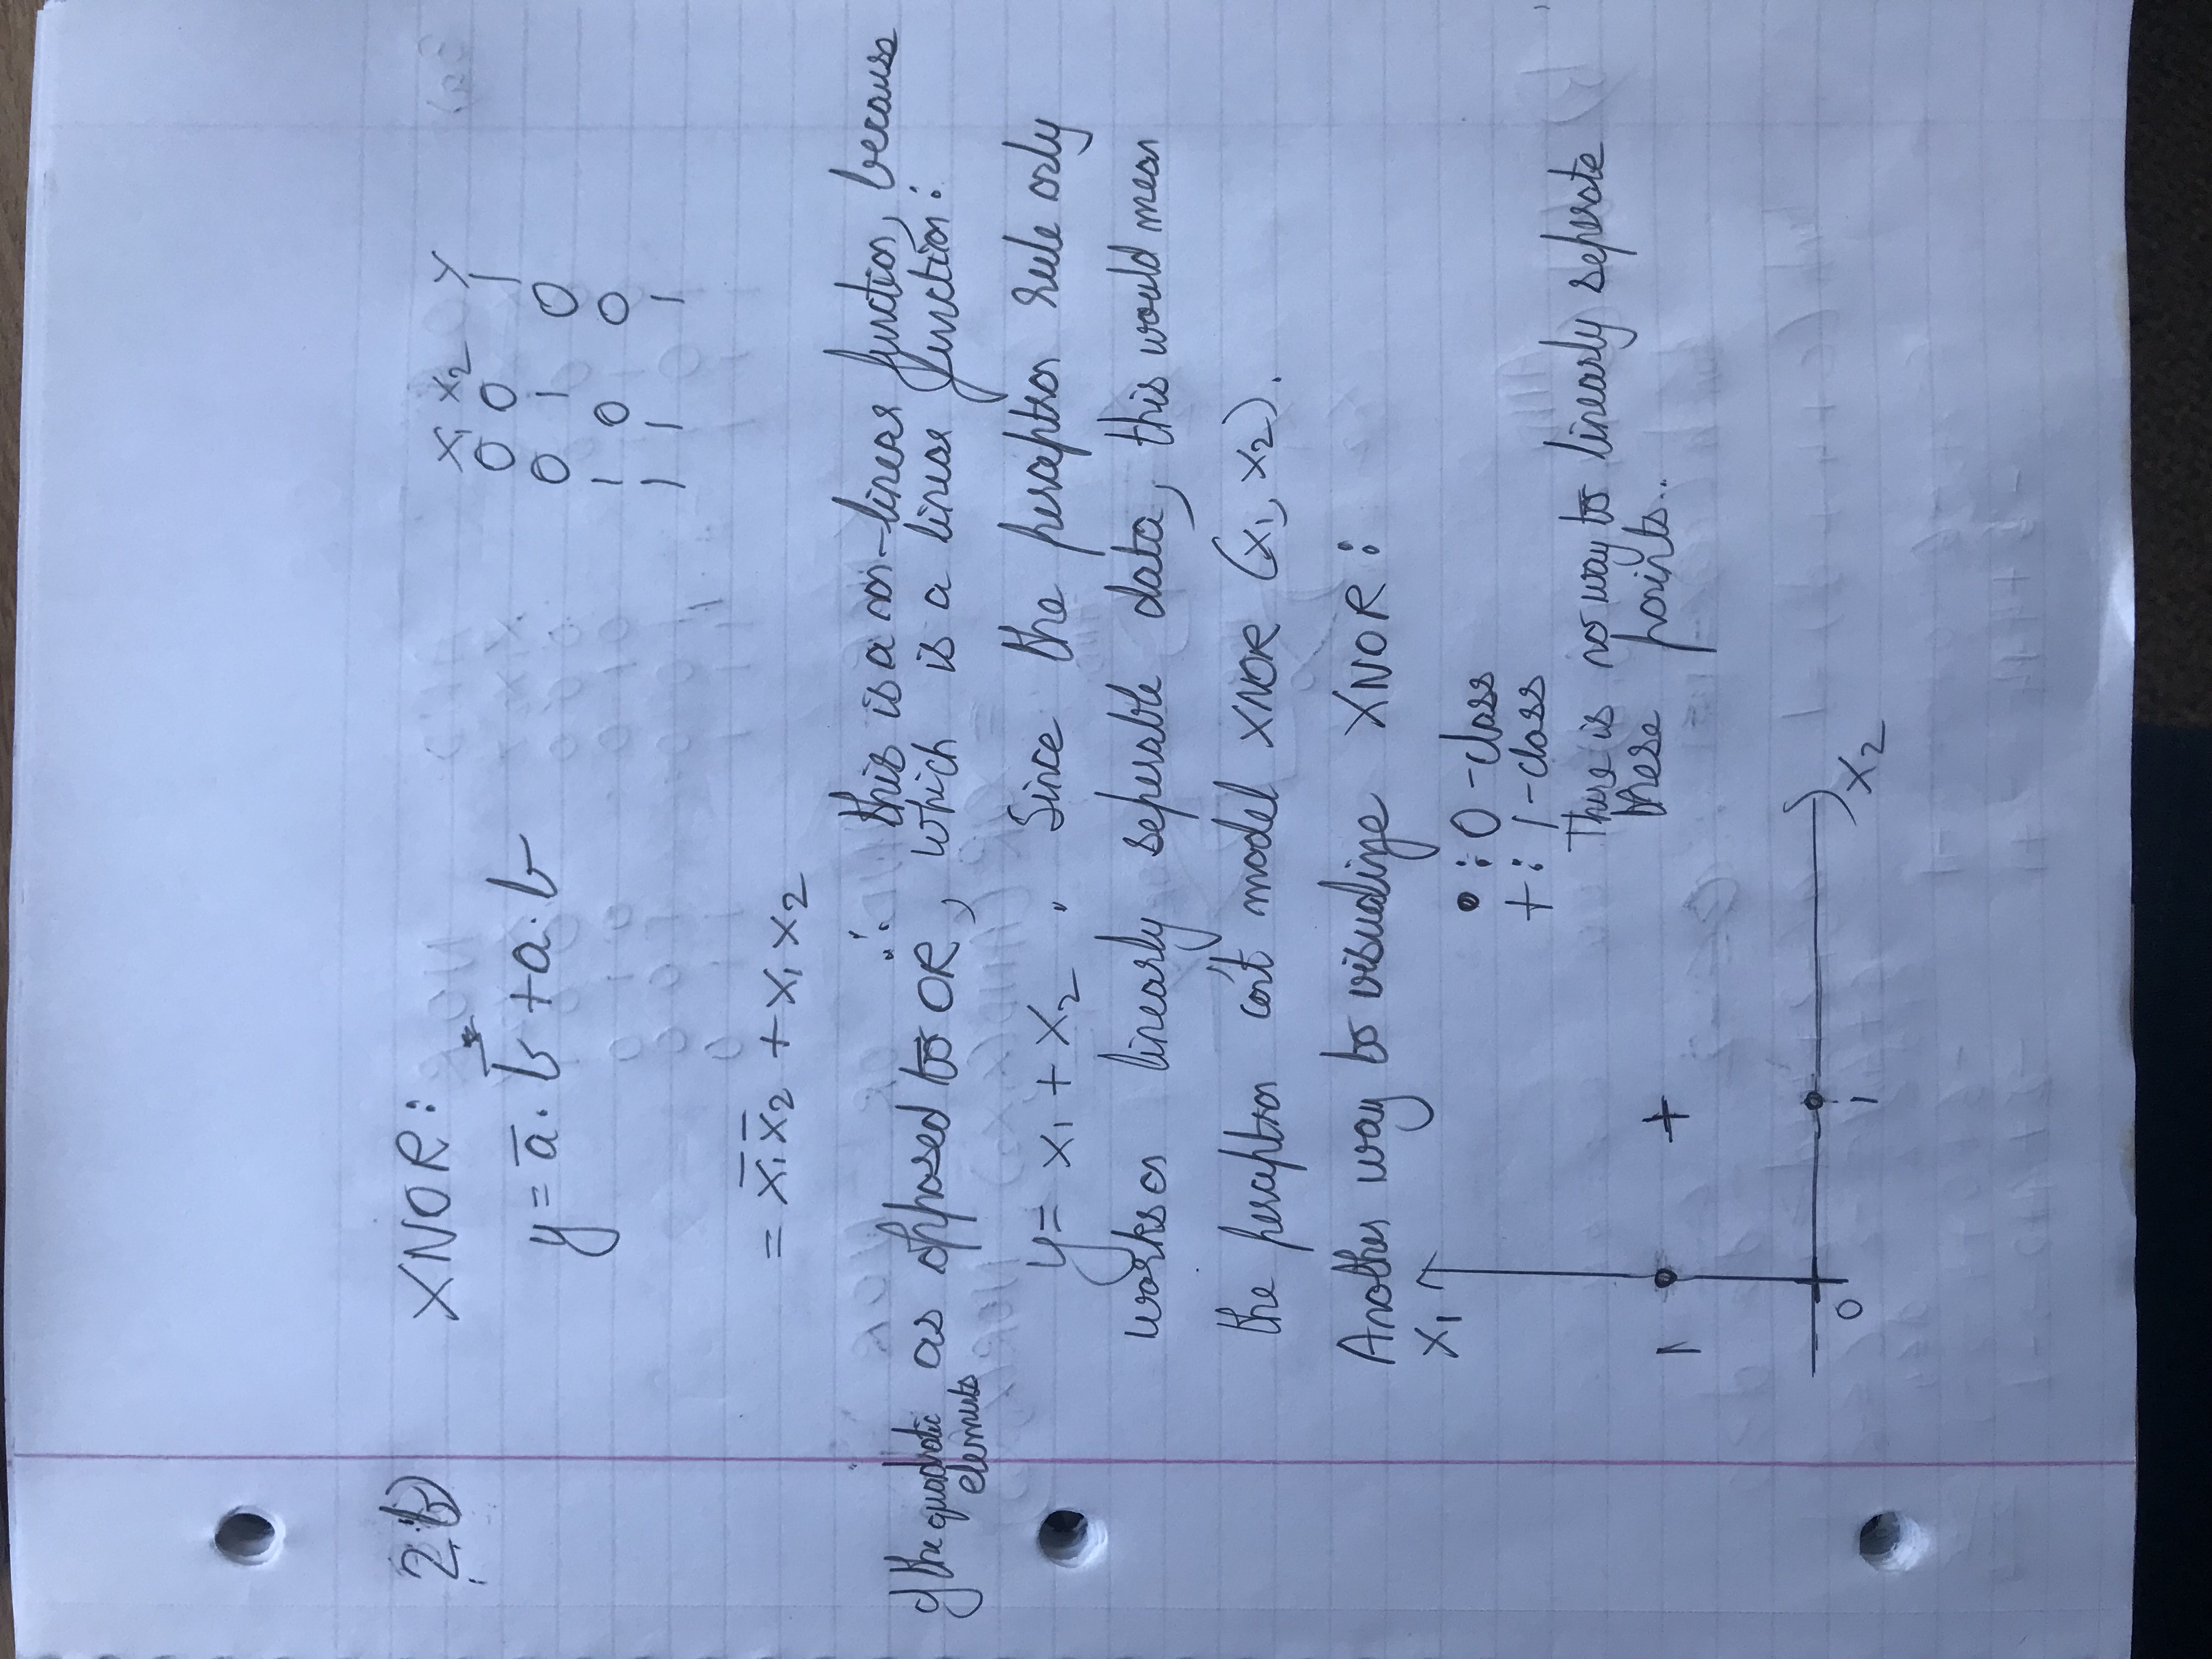 2b) XNOR:
y = a̅ . b̅ + a . b
x₁ x₂ y
0 0 1
0 1 0
1 0 0
1 1 1
= x̅₁ x̅₂ + x₁ x₂
∴ this is a non-linear function, because
of the quadratic elements as opposed to OR, which is a linear function:
y = x₁ + x₂ . Since the perceptron rule only
works on linearly seperable data, this would mean
the perceptron can't model XNOR (x₁, x₂).
Another way to visualize XNOR:
x₁
• : 0-class
+ : 1-class
There is no way to linearly seperate
these points..
1
0
1
x₂